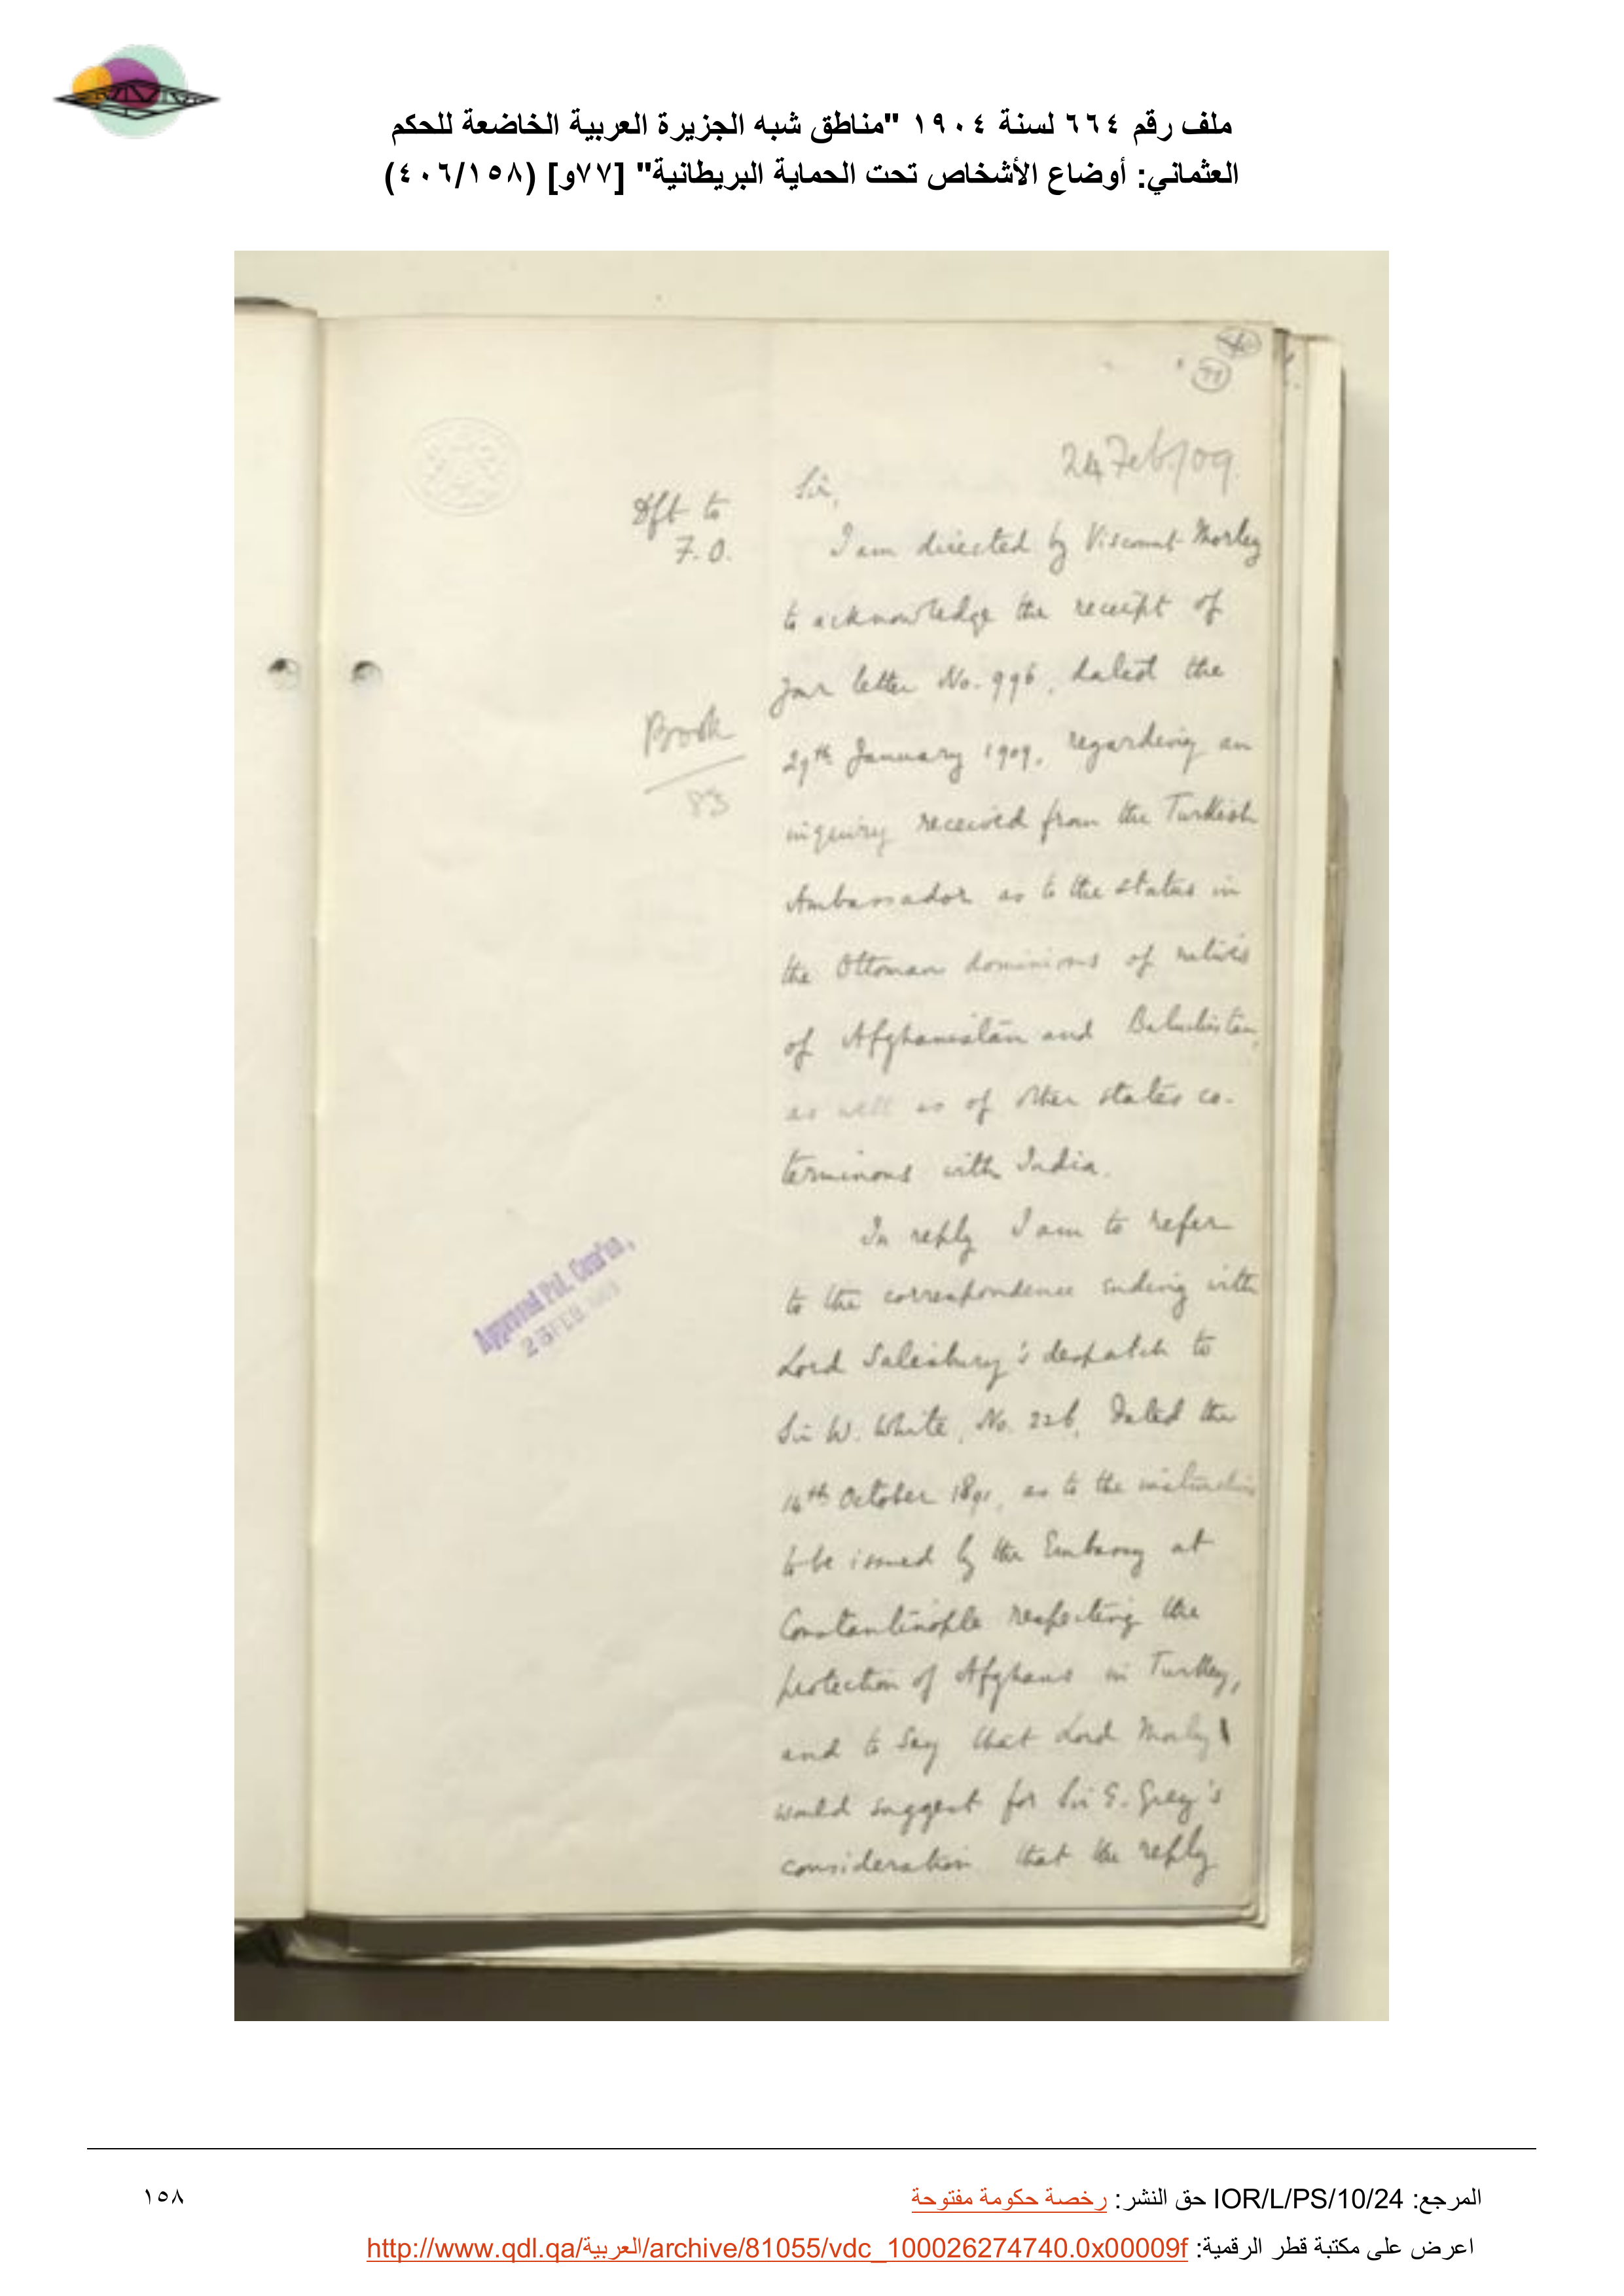 ملف رقم ٦٦٤ لسنة ١٩٠٤ "مناطق شبه الجزيرة العربية الخاضعة للحكم
العثماني: أوضاع الأشخاص تحت الحماية البريطانية" [٧٧و] (٤٠٦/١٥٨)
77
24 Feb/09.
Dft to
F.O.
Sir,
I am directed by Viscount Morley
to acknowledge the receipt of
your letter No. 996, dated the
29th January 1909, regarding an
inquiry received from the Turkish
Ambassador as to the status in
the Ottoman dominions of natives
of Afghanistan and Baluchistan,
as well as of other states co-
terminous with India.
Book
83
In reply I am to refer
to the correspondence ending with
Lord Salisbury's despatch to
Sir W. White, No. 226, dated the
14th October 1890, as to the instructions
to be issued by the Embassy at
Constantinople respecting the
protection of Afghans in Turkey,
and to say that Lord Morley
would suggest for Sir E. Grey's
consideration that the reply
Approved Pol. Com'ee,
23 FEB 1909
المرجع: IOR/L/PS/10/24 حق النشر: رخصة حكومة مفتوحة
١٥٨
اعرض على مكتبة قطر الرقمية: http://www.qdl.qa/العربية/archive/81055/vdc_100026274740.0x00009f